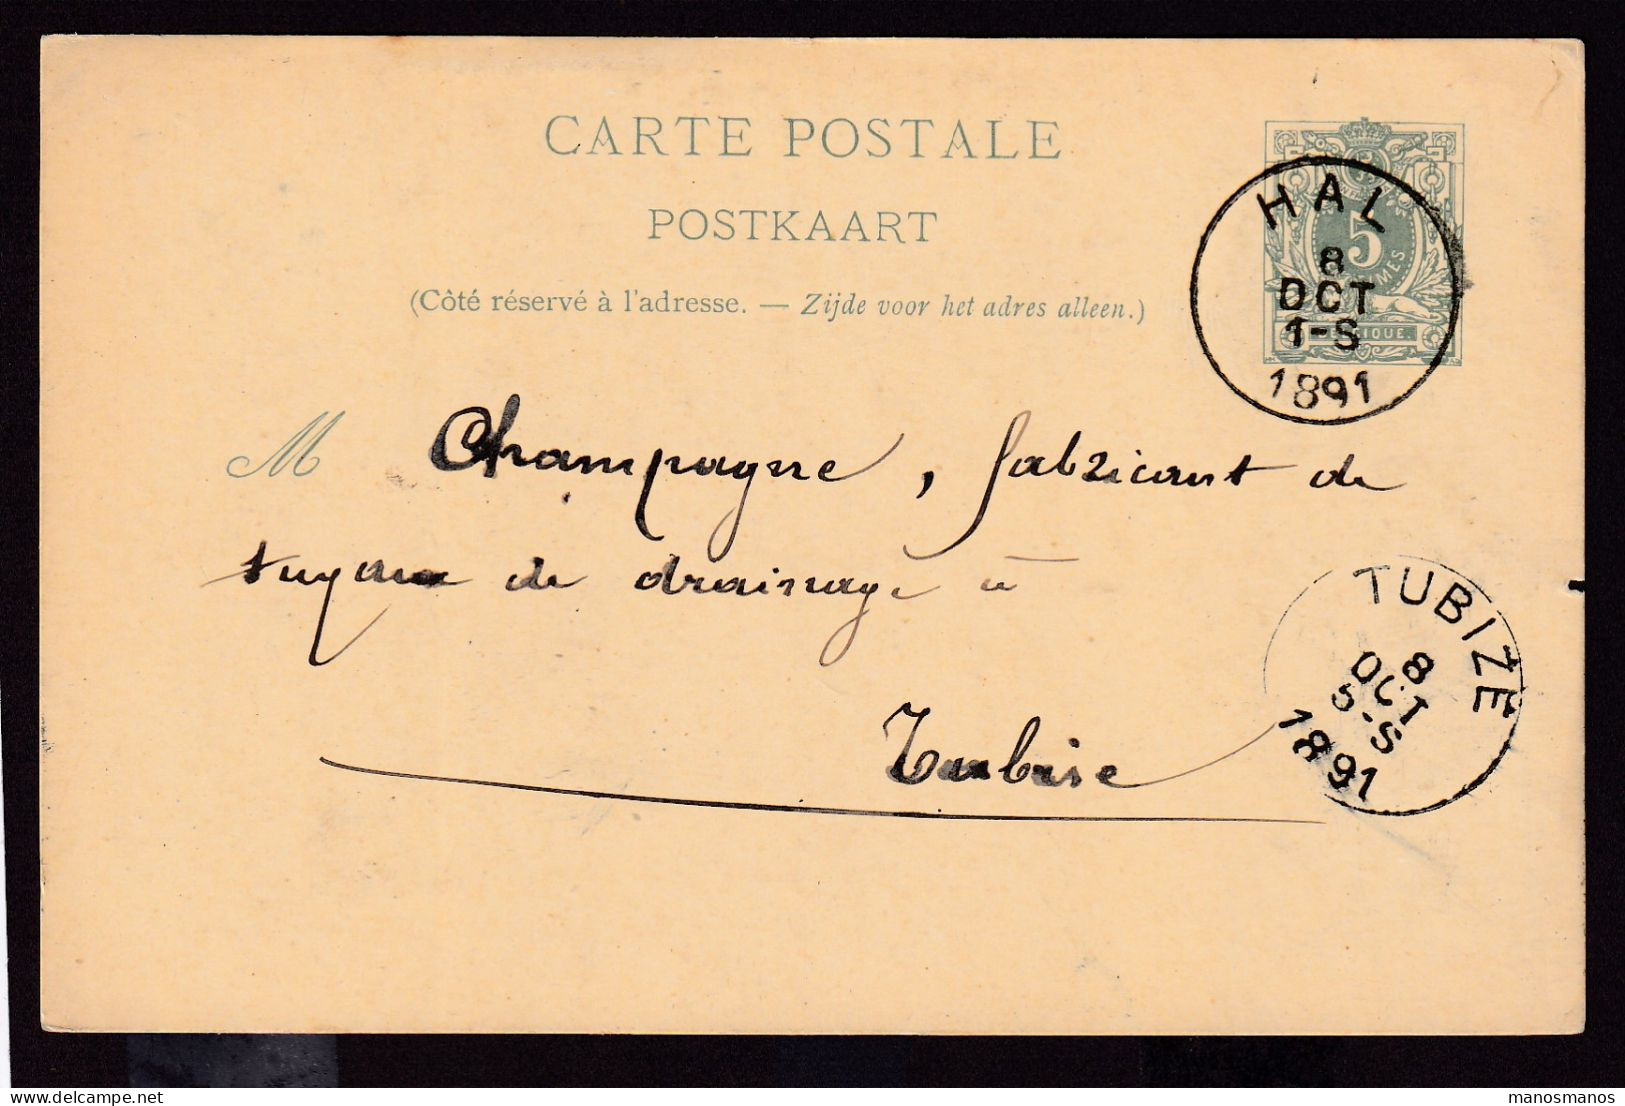 CARTE POSTALE
POSTKAART
(Côté réservé à l'adresse. — Zijde voor het adres alleen.)
5
BELGIQUE.
HAL
8
OCT
1-S
1891
M Champagne, fabricant de
tuyaux de drainage à
Tubise
TUBIZE
8
OCT
5-S
1891
manosmanos